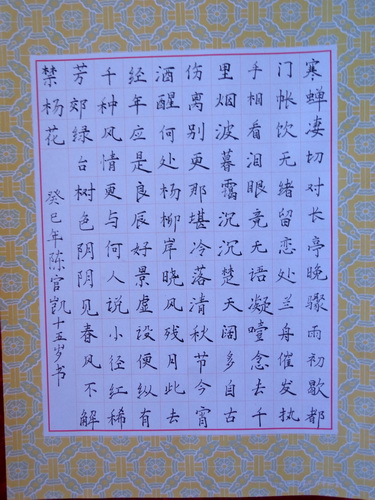 寒蝉凄切对长亭晚骤雨初歇都
门帐饮无绪留恋处兰舟催发执
手相看泪眼竟无语凝噎念去千
里烟波暮霭沉沉楚天阔多自古
伤离别更那堪冷落清秋节今宵
酒醒何处杨柳岸晓风残月此去
经年应是良辰好景虚设便纵有
千种风情更与何人说小径红稀
芳郊绿台树色阴阴见春风不解
禁杨花 癸巳年陈官凯十五岁书